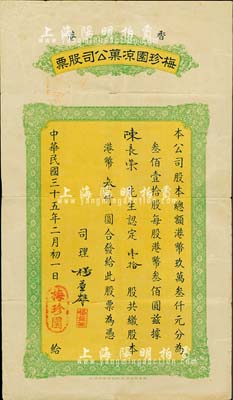 香港
梅珍園凉菓公司股票
本公司股本總額港幣玖萬叁仟元分為
叁佰壹拾股每股港幣叁佰圓茲據
陳長榮先生認定 拾股共繳股本
港幣 圓合發給此股票為憑
司理
中華民國三十五年二月初一日 給
梅珍園
上海陽明拍賣